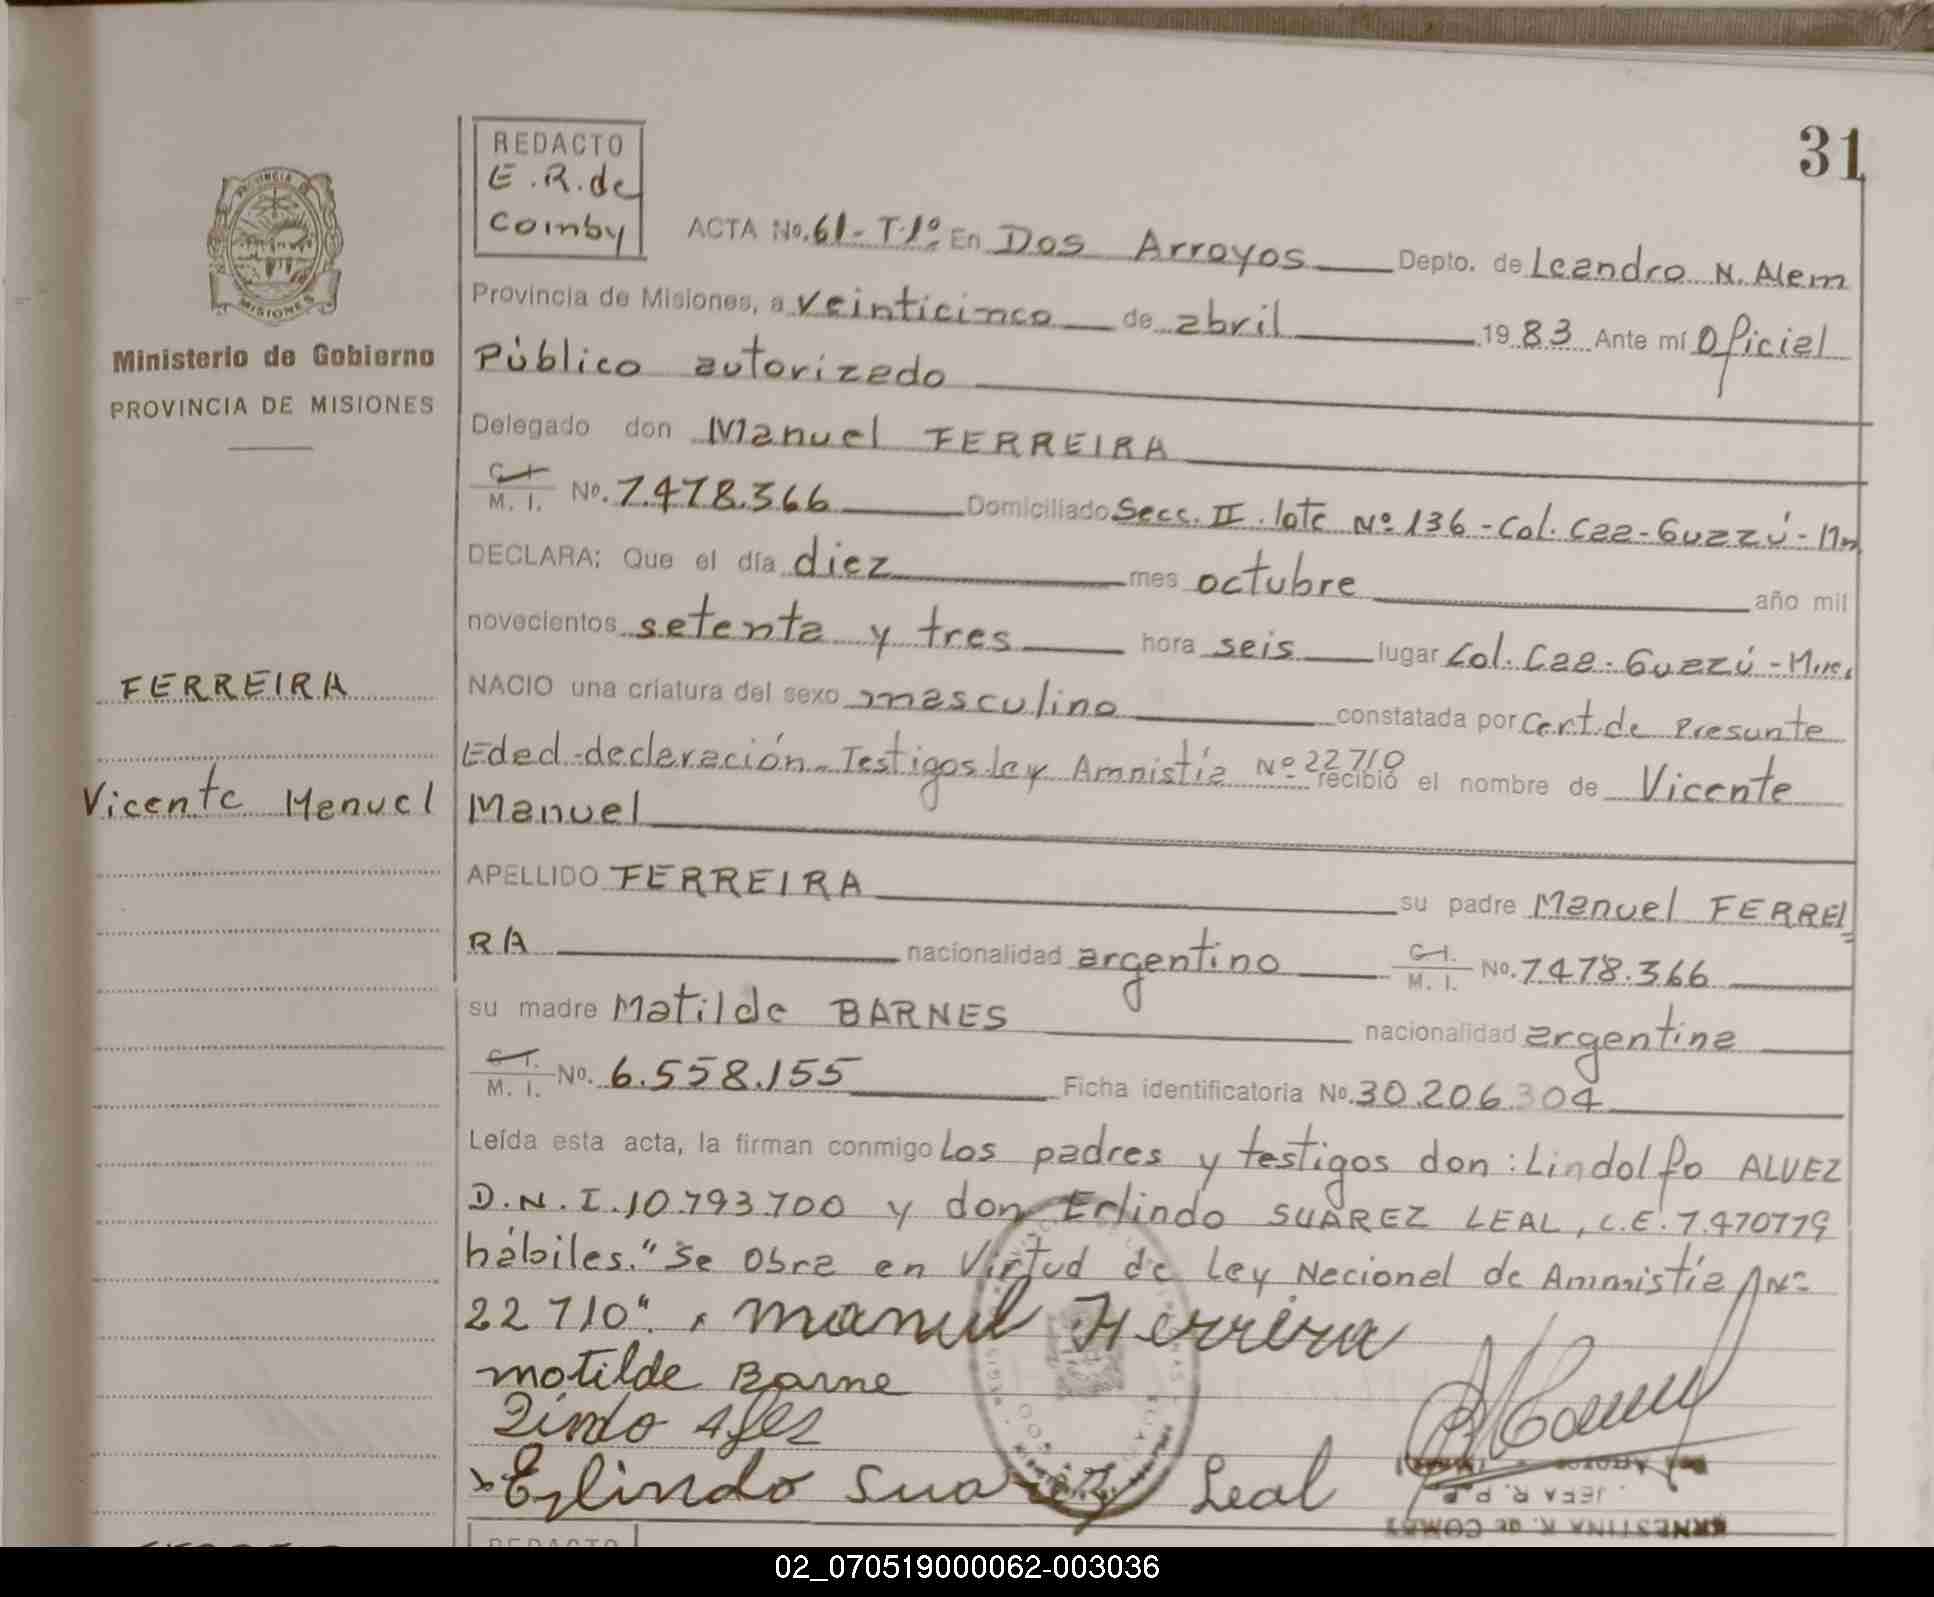 31
REDACTO
E.R. de
Comby
PROVINCIA DE
MISIONES
Ministerio de Gobierno
PROVINCIA DE MISIONES
ACTA No. 61- T.1º En Dos Arroyos Depto. de Leandro N. Alem
Provincia de Misiones, a veinticinco de abril 1983 Ante mí Oficial
Público autorizado
Delegado don Manuel FERREIRA
C.I. M. I. No. 7.478.366 Domiciliado Secc. II. lote Nº 136 - Col. Caa-Guazú -
DECLARA; Que el día diez mes octubre año mil
novecientos setenta y tres hora seis lugar Col. Caa-Guazú -
FERREIRA
NACIO una criatura del sexo masculino constatada por Cert. de Presunta
Edad - declaración - Testigos ley Amnistía Nº 22710 recibió el nombre de Vicente
Vicente Manuel
Manuel
APELLIDO FERREIRA su padre Manuel FERREI
RA nacionalidad argentino C.I. M. I. No. 7478.366
su madre Matilde BARNES nacionalidad argentina
C.I. M. I. No. 6.558.155 Ficha identificatoria No. 30.206.304
Leída esta acta, la firman conmigo Los padres y testigos don: Lindolfo ALVEZ
D.N.I. 10.793.700 y don Erlindo SUAREZ LEAL, C.E. 7.470779
hábiles. "Se Obra en Virtud de Ley Nacional de Amnistía Nº
22710".
Manuel Ferreira
Motilde Barne
Erlindo Suarez Leal
JEFA R.P.P.
ERNESTINA R. de COMBY
REDACTO
02_070519000062-003036